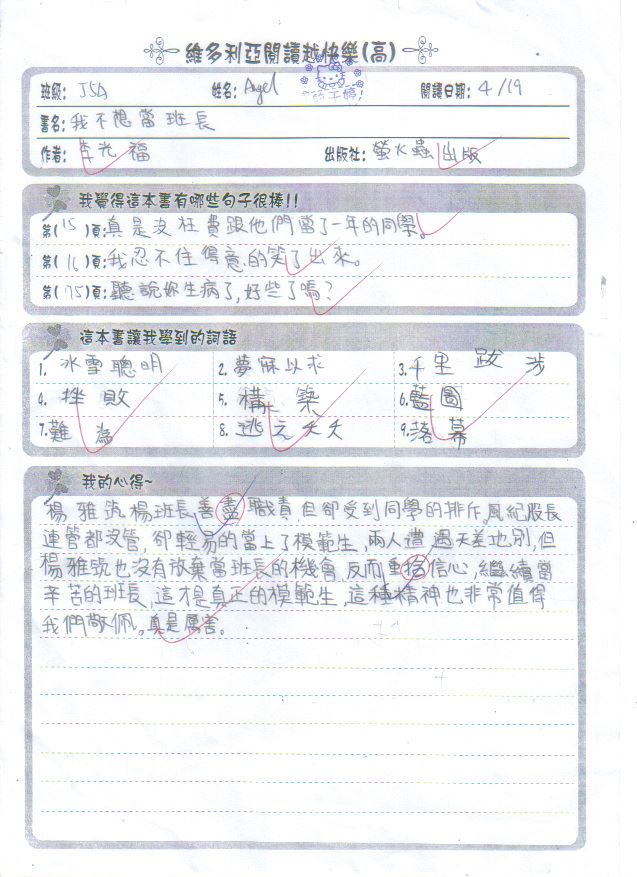 維多利亞閱讀越快樂(高)
班級: J5A 姓名: Angel 閱讀日期: 4/19
書名: 我不想當班長
作者: 李光福 出版社: 螢火蟲出版
我覺得這本書有哪些句子很棒!!
第(15)頁: 真是沒枉費跟他們當了一年的同學。
第(16)頁: 我忍不住得意的笑了出來。
第(75)頁: 聽說妳生病了,好些了嗎?
這本書讓我學到的詞語
1. 冰雪聰明 2. 夢寐以求 3. 千里跋涉
4. 挫敗 5. 構築 6. 藍圖
7. 難為 8. 逃之夭夭 9. 落幕
我的心得~
楊雅筑楊班長善盡職責,但卻受到同學的排斥,風紀股長
連管都沒管,卻輕易的當上了模範生,兩人遭遇天差地別,但
楊雅筑也沒有放棄當班長的機會,反而重拾信心,繼續當
辛苦的班長,這才是真正的模範生,這種精神也非常值得
我們敬佩。真是厲害。